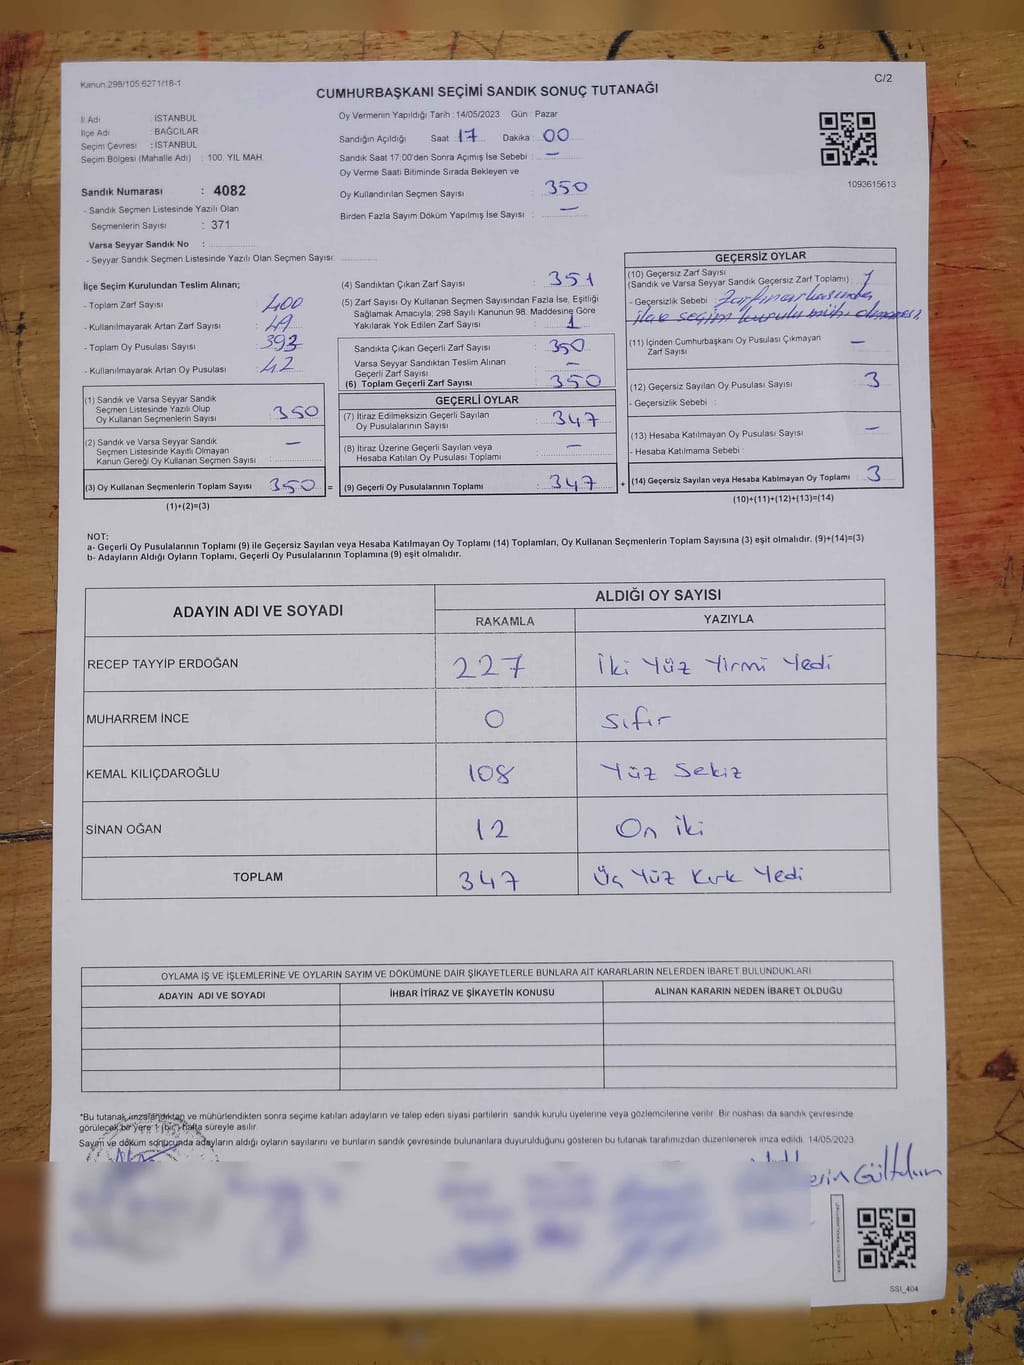 Kanun:298/105;6271/18-1
C/2
CUMHURBAŞKANI SEÇİMİ SANDIK SONUÇ TUTANAĞI
İl Adı : İSTANBUL
İlçe Adı : BAĞCILAR
Seçim Çevresi : İSTANBUL
Seçim Bölgesi (Mahalle Adı) : 100. YIL MAH.
Sandık Numarası : 4082
- Sandık Seçmen Listesinde Yazılı Olan
Seçmenlerin Sayısı : 371
Varsa Seyyar Sandık No :
- Seyyar Sandık Seçmen Listesinde Yazılı Olan Seçmen Sayısı:
Oy Vermenin Yapıldığı Tarih : 14/05/2023 Gün : Pazar
Sandığın Açıldığı Saat : 17 Dakika : 00
Sandık Saat 17:00'den Sonra Açımış İse Sebebi : —
Oy Verme Saati Bitiminde Sırada Bekleyen ve
Oy Kullandırılan Seçmen Sayısı : 350
Birden Fazla Sayım Döküm Yapılmış İse Sayısı : —
1093615613
İlçe Seçim Kurulundan Teslim Alınan;
- Toplam Zarf Sayısı : 400
- Kullanılmayarak Artan Zarf Sayısı : 49
- Toplam Oy Pusulası Sayısı : 393
- Kullanılmayarak Artan Oy Pusulası : 42
(1) Sandık ve Varsa Seyyar Sandık
Seçmen Listesinde Yazılı Olup
Oy Kullanan Seçmenlerin Sayısı : 350
(2) Sandık ve Varsa Seyyar Sandık
Seçmen Listesinde Kayıtlı Olmayan
Kanun Gereği Oy Kullanan Seçmen Sayısı : —
(3) Oy Kullanan Seçmenlerin Toplam Sayısı : 350 =
(1)+(2)=(3)
(4) Sandıktan Çıkan Zarf Sayısı : 351
(5) Zarf Sayısı Oy Kullanan Seçmen Sayısından Fazla İse, Eşitliği
Sağlamak Amacıyla; 298 Sayılı Kanunun 98. Maddesine Göre
Yakılarak Yok Edilen Zarf Sayısı : 1
Sandıkta Çıkan Geçerli Zarf Sayısı : 350
Varsa Seyyar Sandıktan Teslim Alınan
Geçerli Zarf Sayısı : —
(6) Toplam Geçerli Zarf Sayısı : 350
GEÇERLİ OYLAR
(7) İtiraz Edilmeksizin Geçerli Sayılan
Oy Pusulalarının Sayısı : 347
(8) İtiraz Üzerine Geçerli Sayılan veya
Hesaba Katılan Oy Pusulası Toplamı : —
(9) Geçerli Oy Pusulalarının Toplamı : 347 +
GEÇERSİZ OYLAR
(10) Geçersiz Zarf Sayısı
(Sandık ve Varsa Seyyar Sandık Geçersiz Zarf Toplamı) : 1
- Geçersizlik Sebebi : Zarfın arkasında
ilçe seçim kurulu mührü olmaması
(11) İçinden Cumhurbaşkanı Oy Pusulası Çıkmayan
Zarf Sayısı : —
(12) Geçersiz Sayılan Oy Pusulası Sayısı : 3
- Geçersizlik Sebebi :
(13) Hesaba Katılmayan Oy Pusulası Sayısı : —
- Hesaba Katılmama Sebebi :
(14) Geçersiz Sayılan veya Hesaba Katılmayan Oy Toplamı : 3
(10)+(11)+(12)+(13)=(14)
NOT:
a- Geçerli Oy Pusulalarının Toplamı (9) ile Geçersiz Sayılan veya Hesaba Katılmayan Oy Toplamı (14) Toplamları, Oy Kullanan Seçmenlerin Toplam Sayısına (3) eşit olmalıdır. (9)+(14)=(3)
b- Adayların Aldığı Oyların Toplamı, Geçerli Oy Pusulalarının Toplamına (9) eşit olmalıdır.
ADAYIN ADI VE SOYADI ALDIĞI OY SAYISI
RAKAMLA YAZIYLA
RECEP TAYYİP ERDOĞAN 227 İki Yüz Yirmi Yedi
MUHARREM İNCE 0 Sıfır
KEMAL KILIÇDAROĞLU 108 Yüz Sekiz
SİNAN OĞAN 12 On iki
TOPLAM 347 Üç Yüz Kırk Yedi
OYLAMA İŞ VE İŞLEMLERİNE VE OYLARIN SAYIM VE DÖKÜMÜNE DAİR ŞİKAYETLERLE BUNLARA AİT KARARLARIN NELERDEN İBARET BULUNDUKLARI
ADAYIN ADI VE SOYADI İHBAR İTİRAZ VE ŞİKAYETİN KONUSU ALINAN KARARIN NEDEN İBARET OLDUĞU
*Bu tutanak imzalandıktan ve mühürlendikten sonra seçime katılan adayların ve talep eden siyasi partilerin sandık kurulu üyelerine veya gözlemcilerine verilir. Bir nüshası da sandık çevresinde
görülecek bir yere 1 (bir) hafta süreyle asılır.
Sayım ve döküm sonucunda adayların aldığı oyların sayılarını ve bunların sandık çevresinde bulunanlara duyurulduğunu gösteren bu tutanak tarafımızdan düzenlenerek imza edildi. 14/05/2023
SSI_404